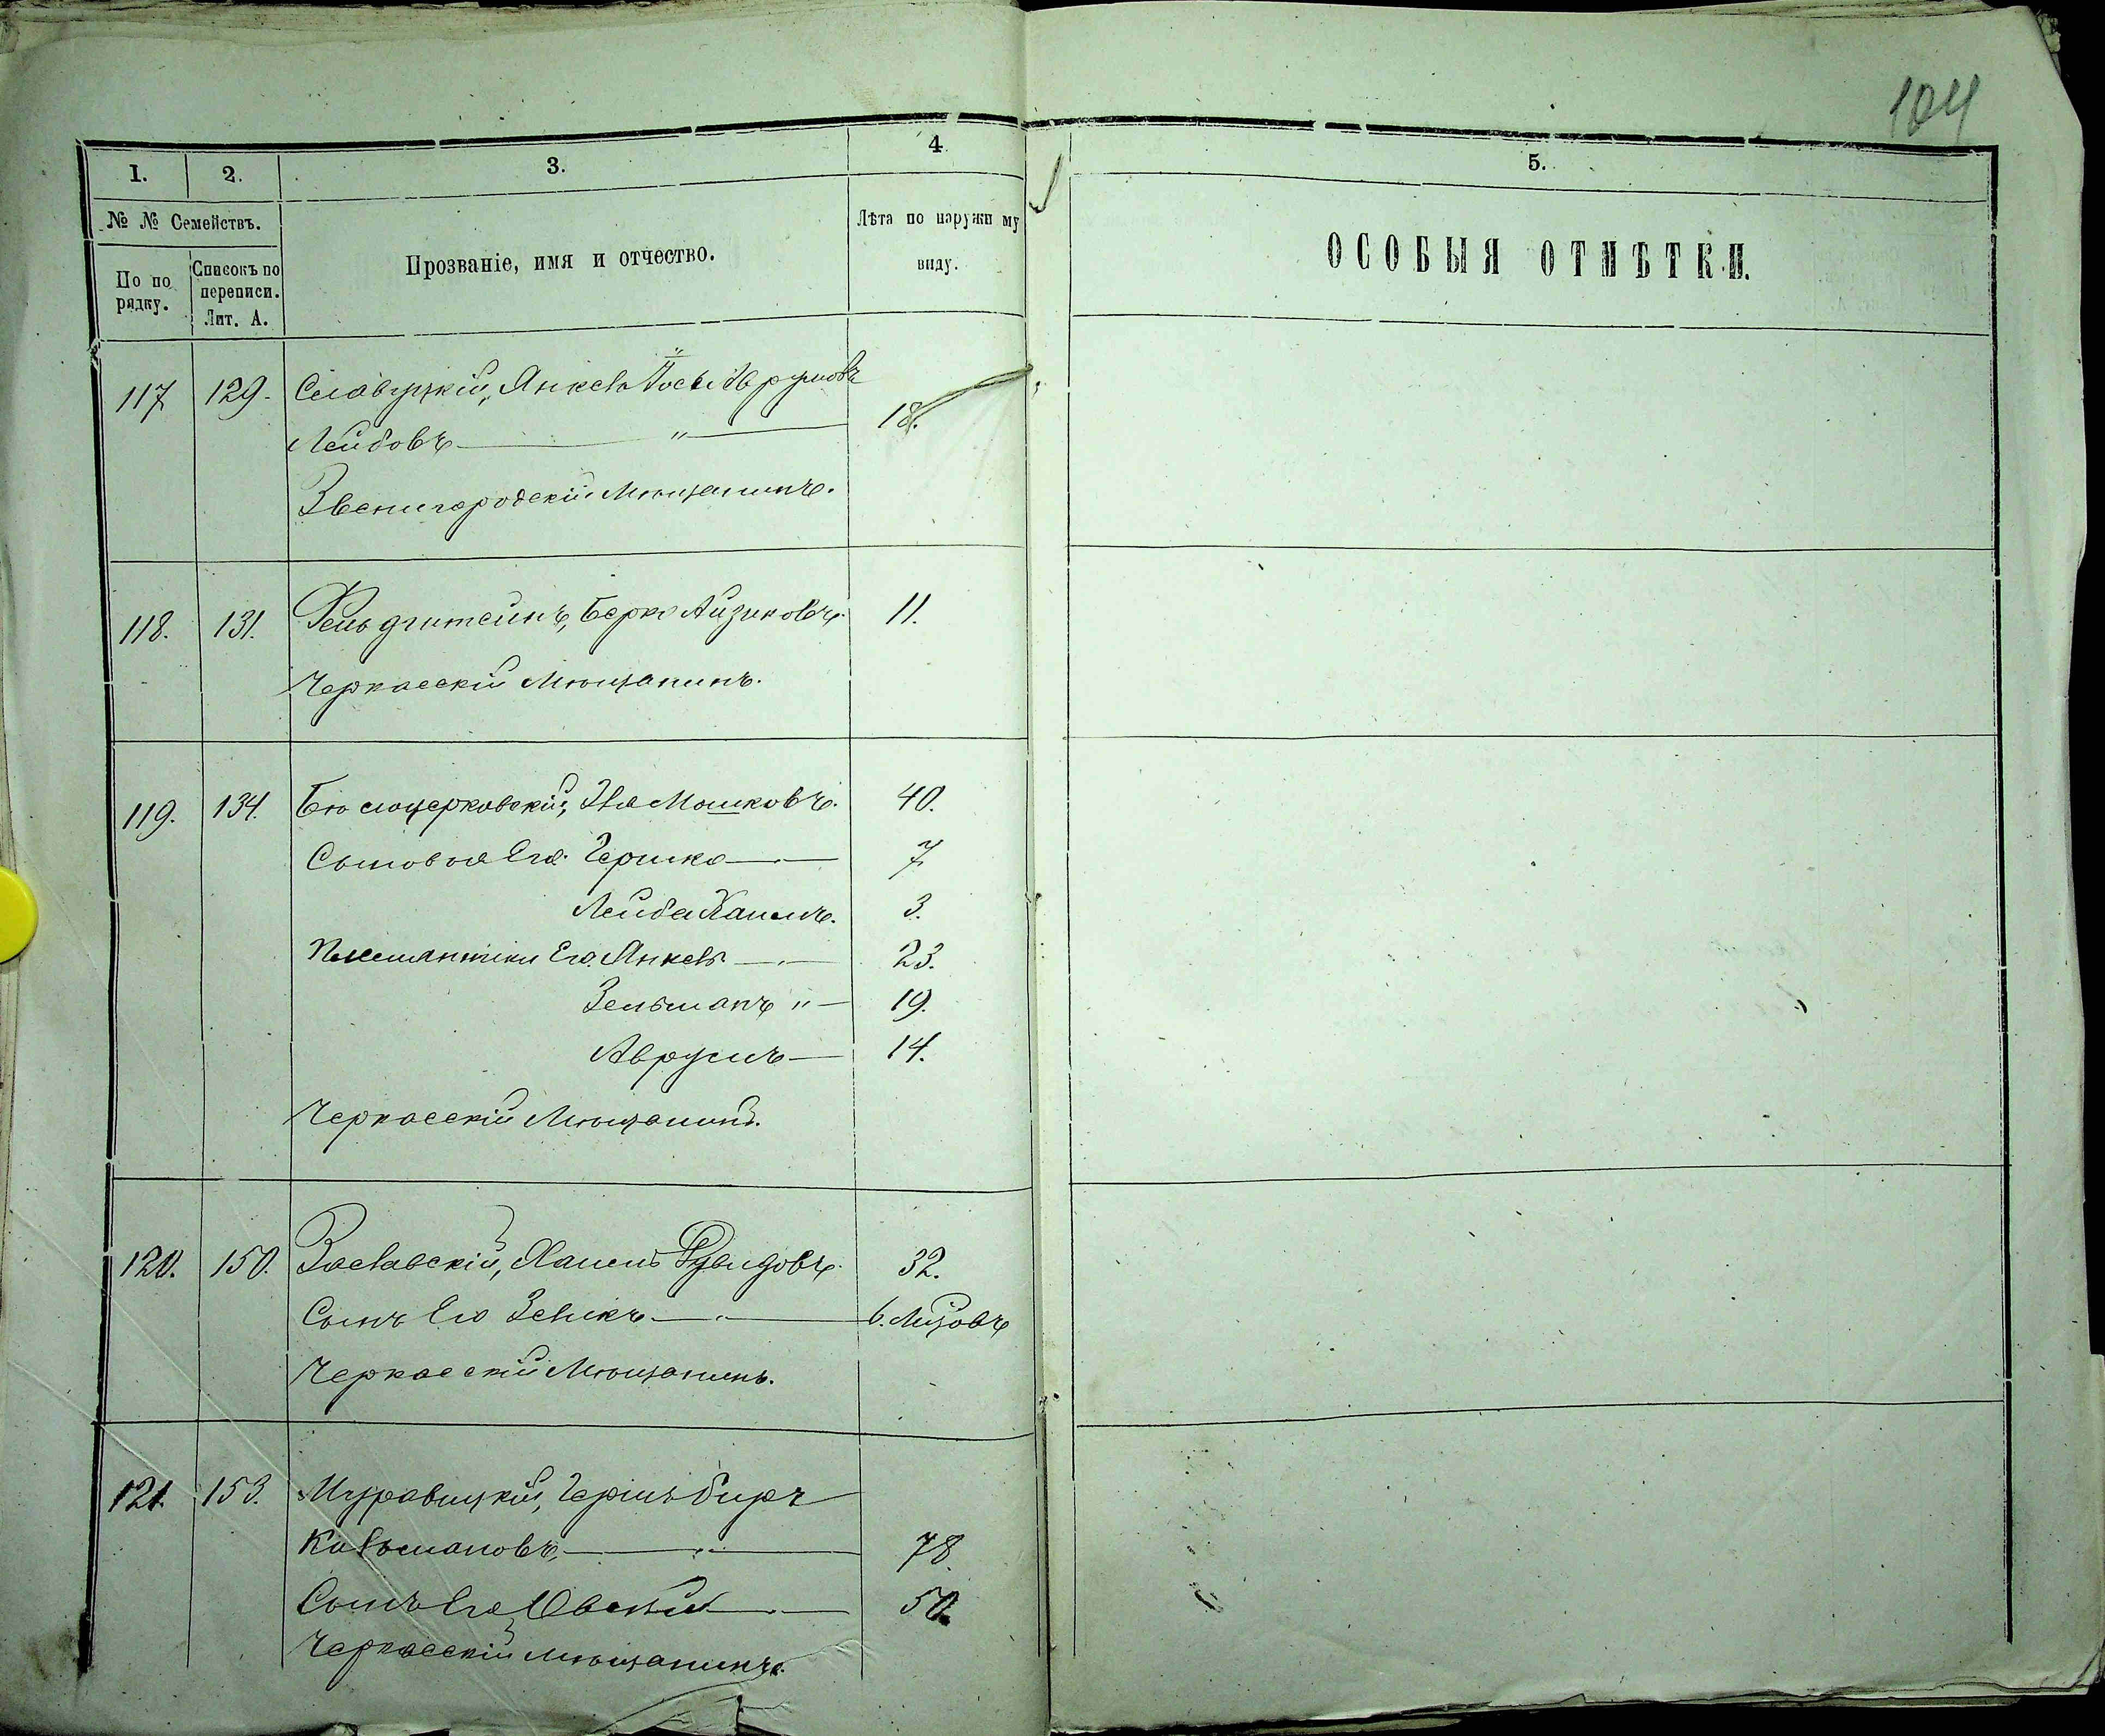 104
1. 2. 3. 4 5.
№ № Семействъ.
По по рядку.
Списокъ по переписи. Лит. А.
Прозваніе, имя и отчество.
Лѣта по наружн му виду.
ОСОБЫЯ ОТМѢТКИ.
117 129. Славуцкій, Янкель Іось Аврумовъ
Лейбовъ 18.
Звенигородскій Мѣщанинъ.
118. 131. Фельдштейнъ, Берко Айзиковъ. 11.
Черкасскій Мѣщанинъ.
119. 134. Бѣлоцерковскій, Мошковъ. 40.
Сыновья Его. Гершко 7
Лейба Хаимъ. 3.
Племянники Его. Янкель 23.
Зельманъ 19.
Аврумъ 14.
Черкасскій Мѣщанинъ.
120. 150. Заславскій, Хаимъ Дувидовъ. 32.
Сынъ Его Зейликъ 6. Мѣсовъ
Черкасскій Мѣщанинъ.
121. 153. Муравицкій, Гершъ Беръ
Кальмановъ, 78.
Сынъ Его Овсей 50.
Черкасскій мѣщанинъ.